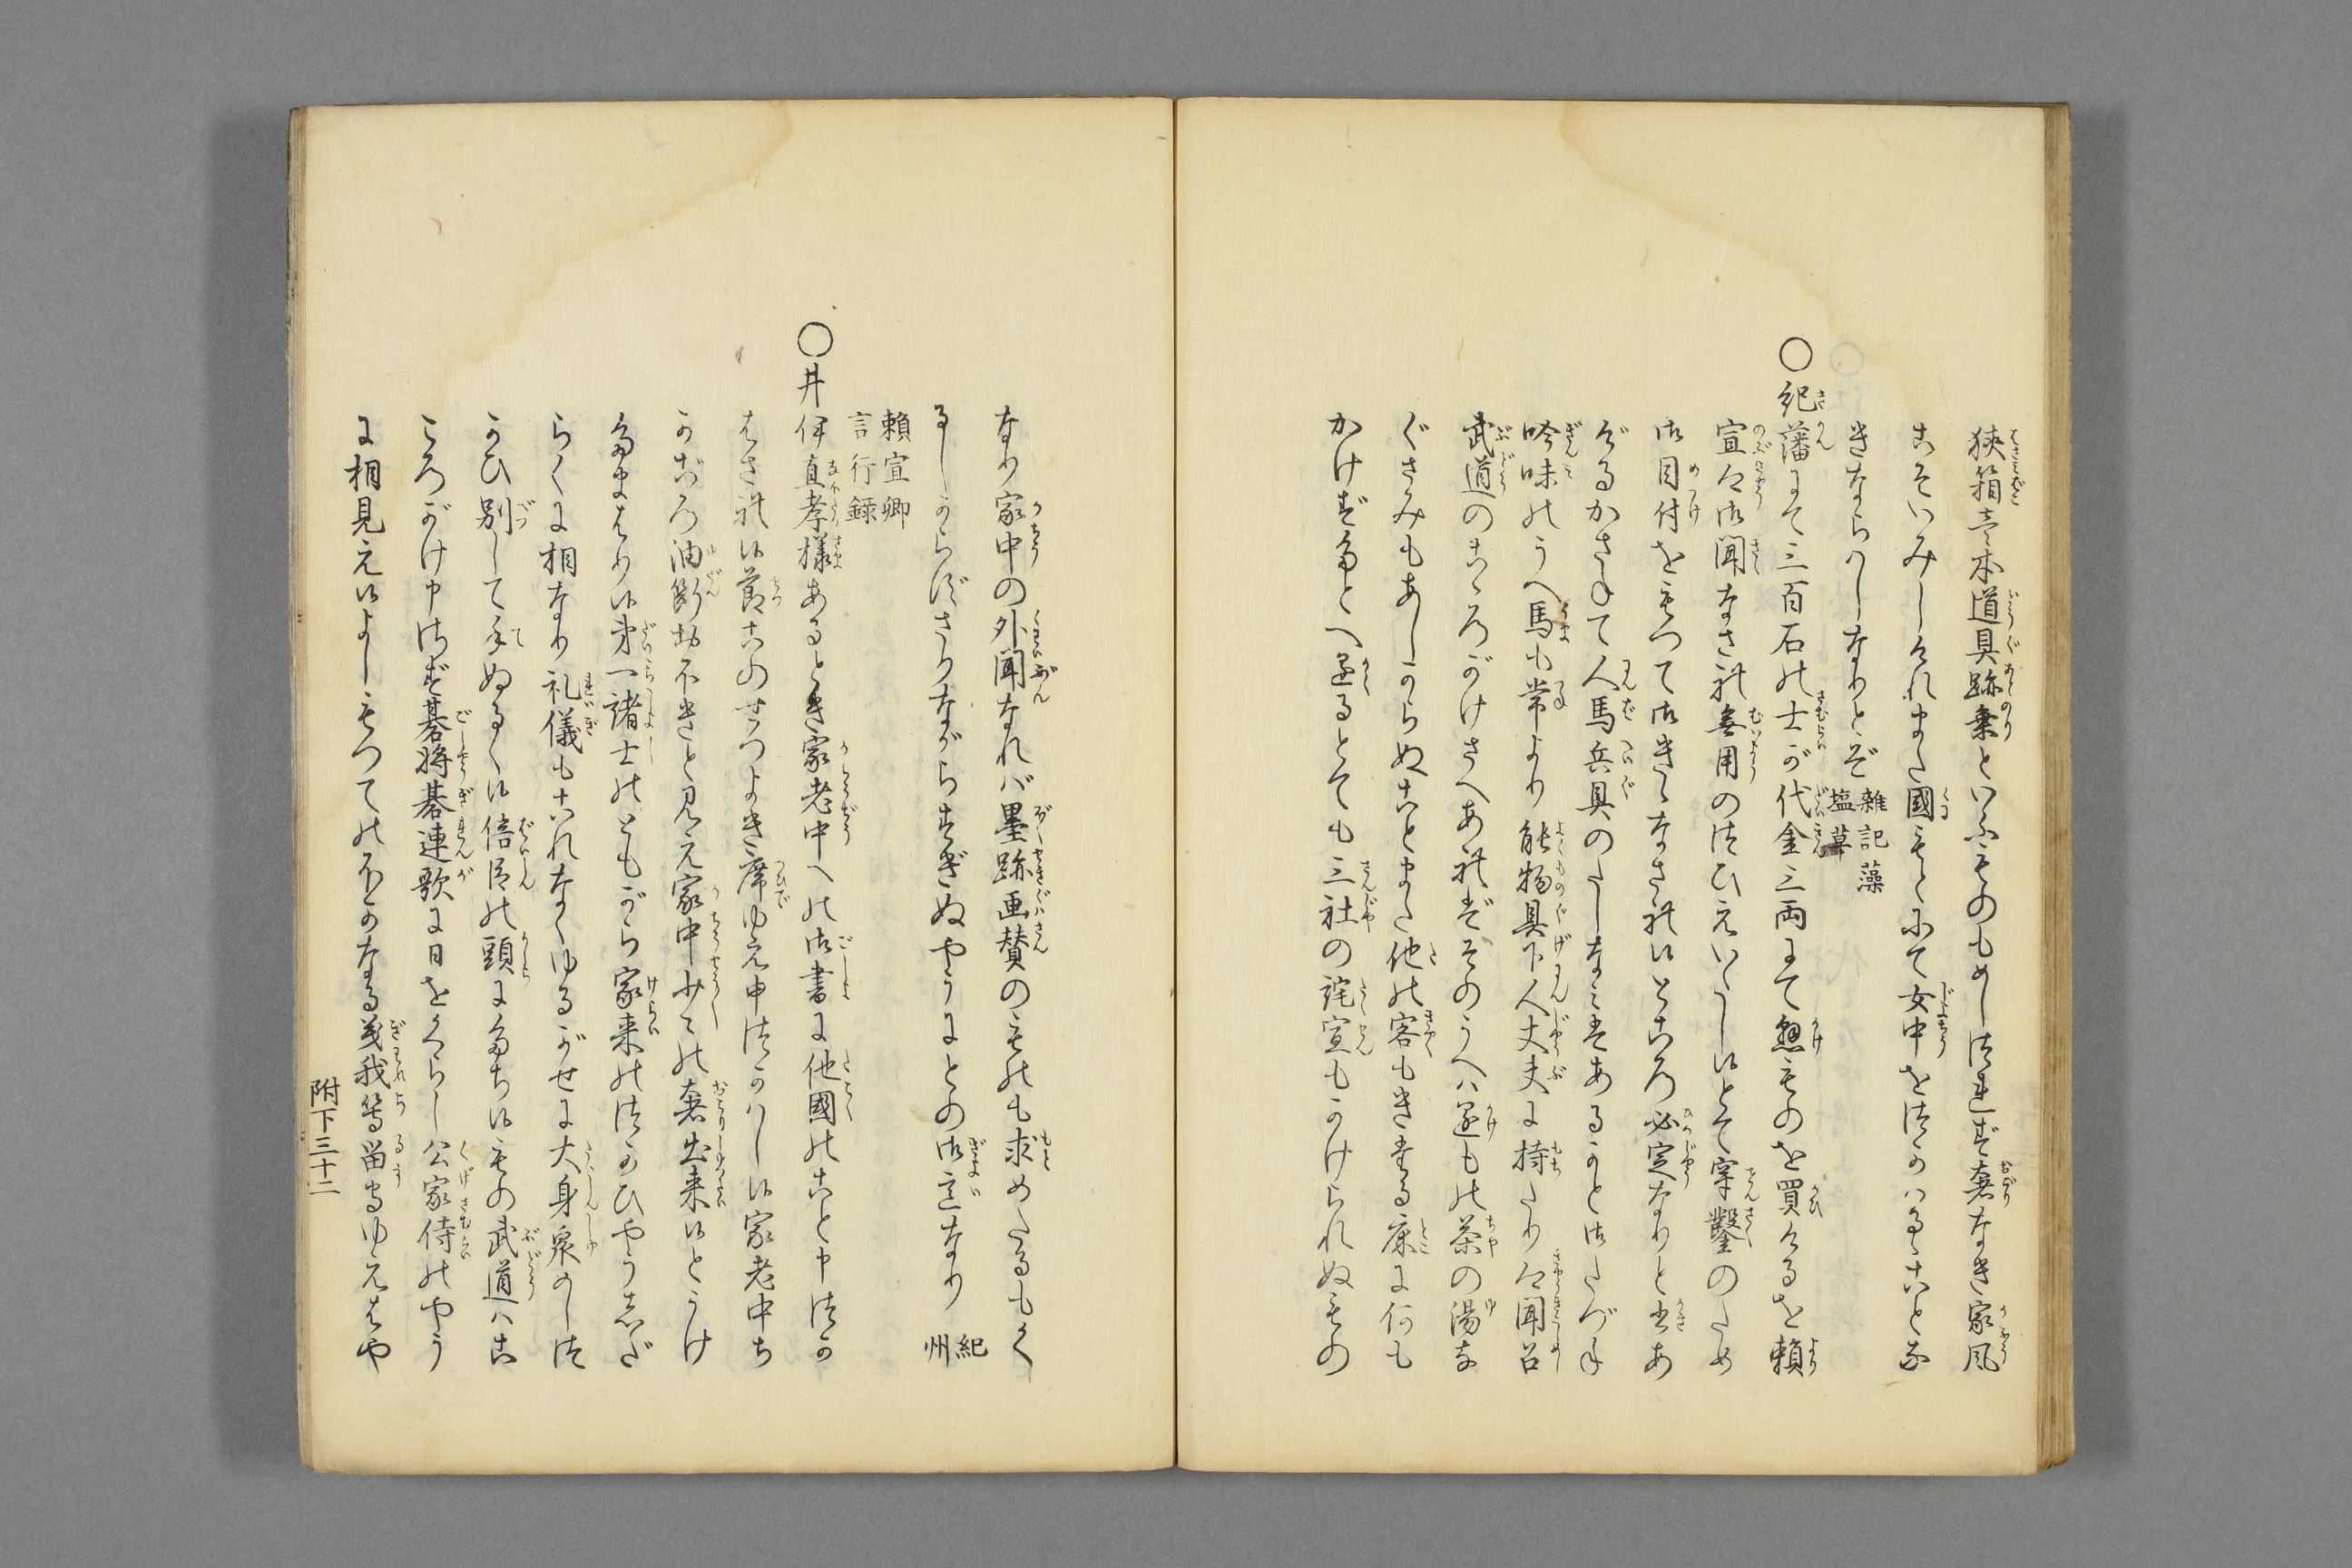 狹箱壱本道具跡乗といふものもめしつれず奢なき家風
こそいみしけれまた國もとにて女中をつかはるゝことな
きならはしなりとぞ
雜記藻
塩草
○紀藩にて三百石の士が代金三両にて懸ものを買けるを頼
宣公御聞なされ無用のつひえいたし候とて穿鑿のため
御目付をもつて御きゝなされ候ところ必定なりと書あ
げるかさねて人馬兵具のたしなみはあるかと御たづね
吟味のうへ馬も常より能物具下人丈夫に持たり公聞召
武道のこゝろがけさへあればそのうへハ逐もの茶の湯な
ぐさみもあしからぬことまた他の客もきたる床に何も
かけずたとへ逐るとても三社の詫宣もかけられぬもの
なり家中の外聞なれバ墨跡画賛のものも求めたるもく
るしからずさりながらすぎぬやうにとの御意なり
紀州
頼宣卿
言行録
○井伊直孝様あるとき家老中への御書に他國のこと申つか
はされ候節このせつよき席ゆゑ申つかハし候家老中ち
かごろ油断故不きと見え家中少々の奢出来候とうけ
たまはり候第一諸士のともがら家来のつかひやうあだ
らくに相なり礼儀もこれなくゆるがせに大身衆のしつ
かひ別して手ぬるく候倍臣の頭にたち候もの武道ハこ
ころがけ申さず碁将碁連歌に日をくらし公家侍のやう
に相見え候よしもつてのほかなる義我等留守ゆゑはや
附下三十二